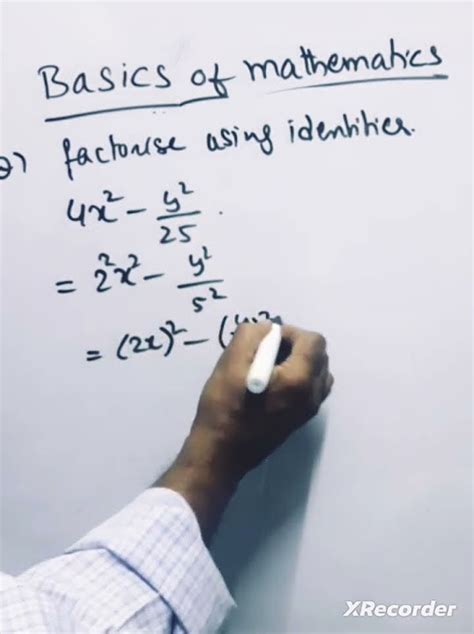 Basics of mathematics
Q) factorise using identities.
4x² - y²/25.
= 2²x² - y²/5²
= (2x)² - (
XRecorder